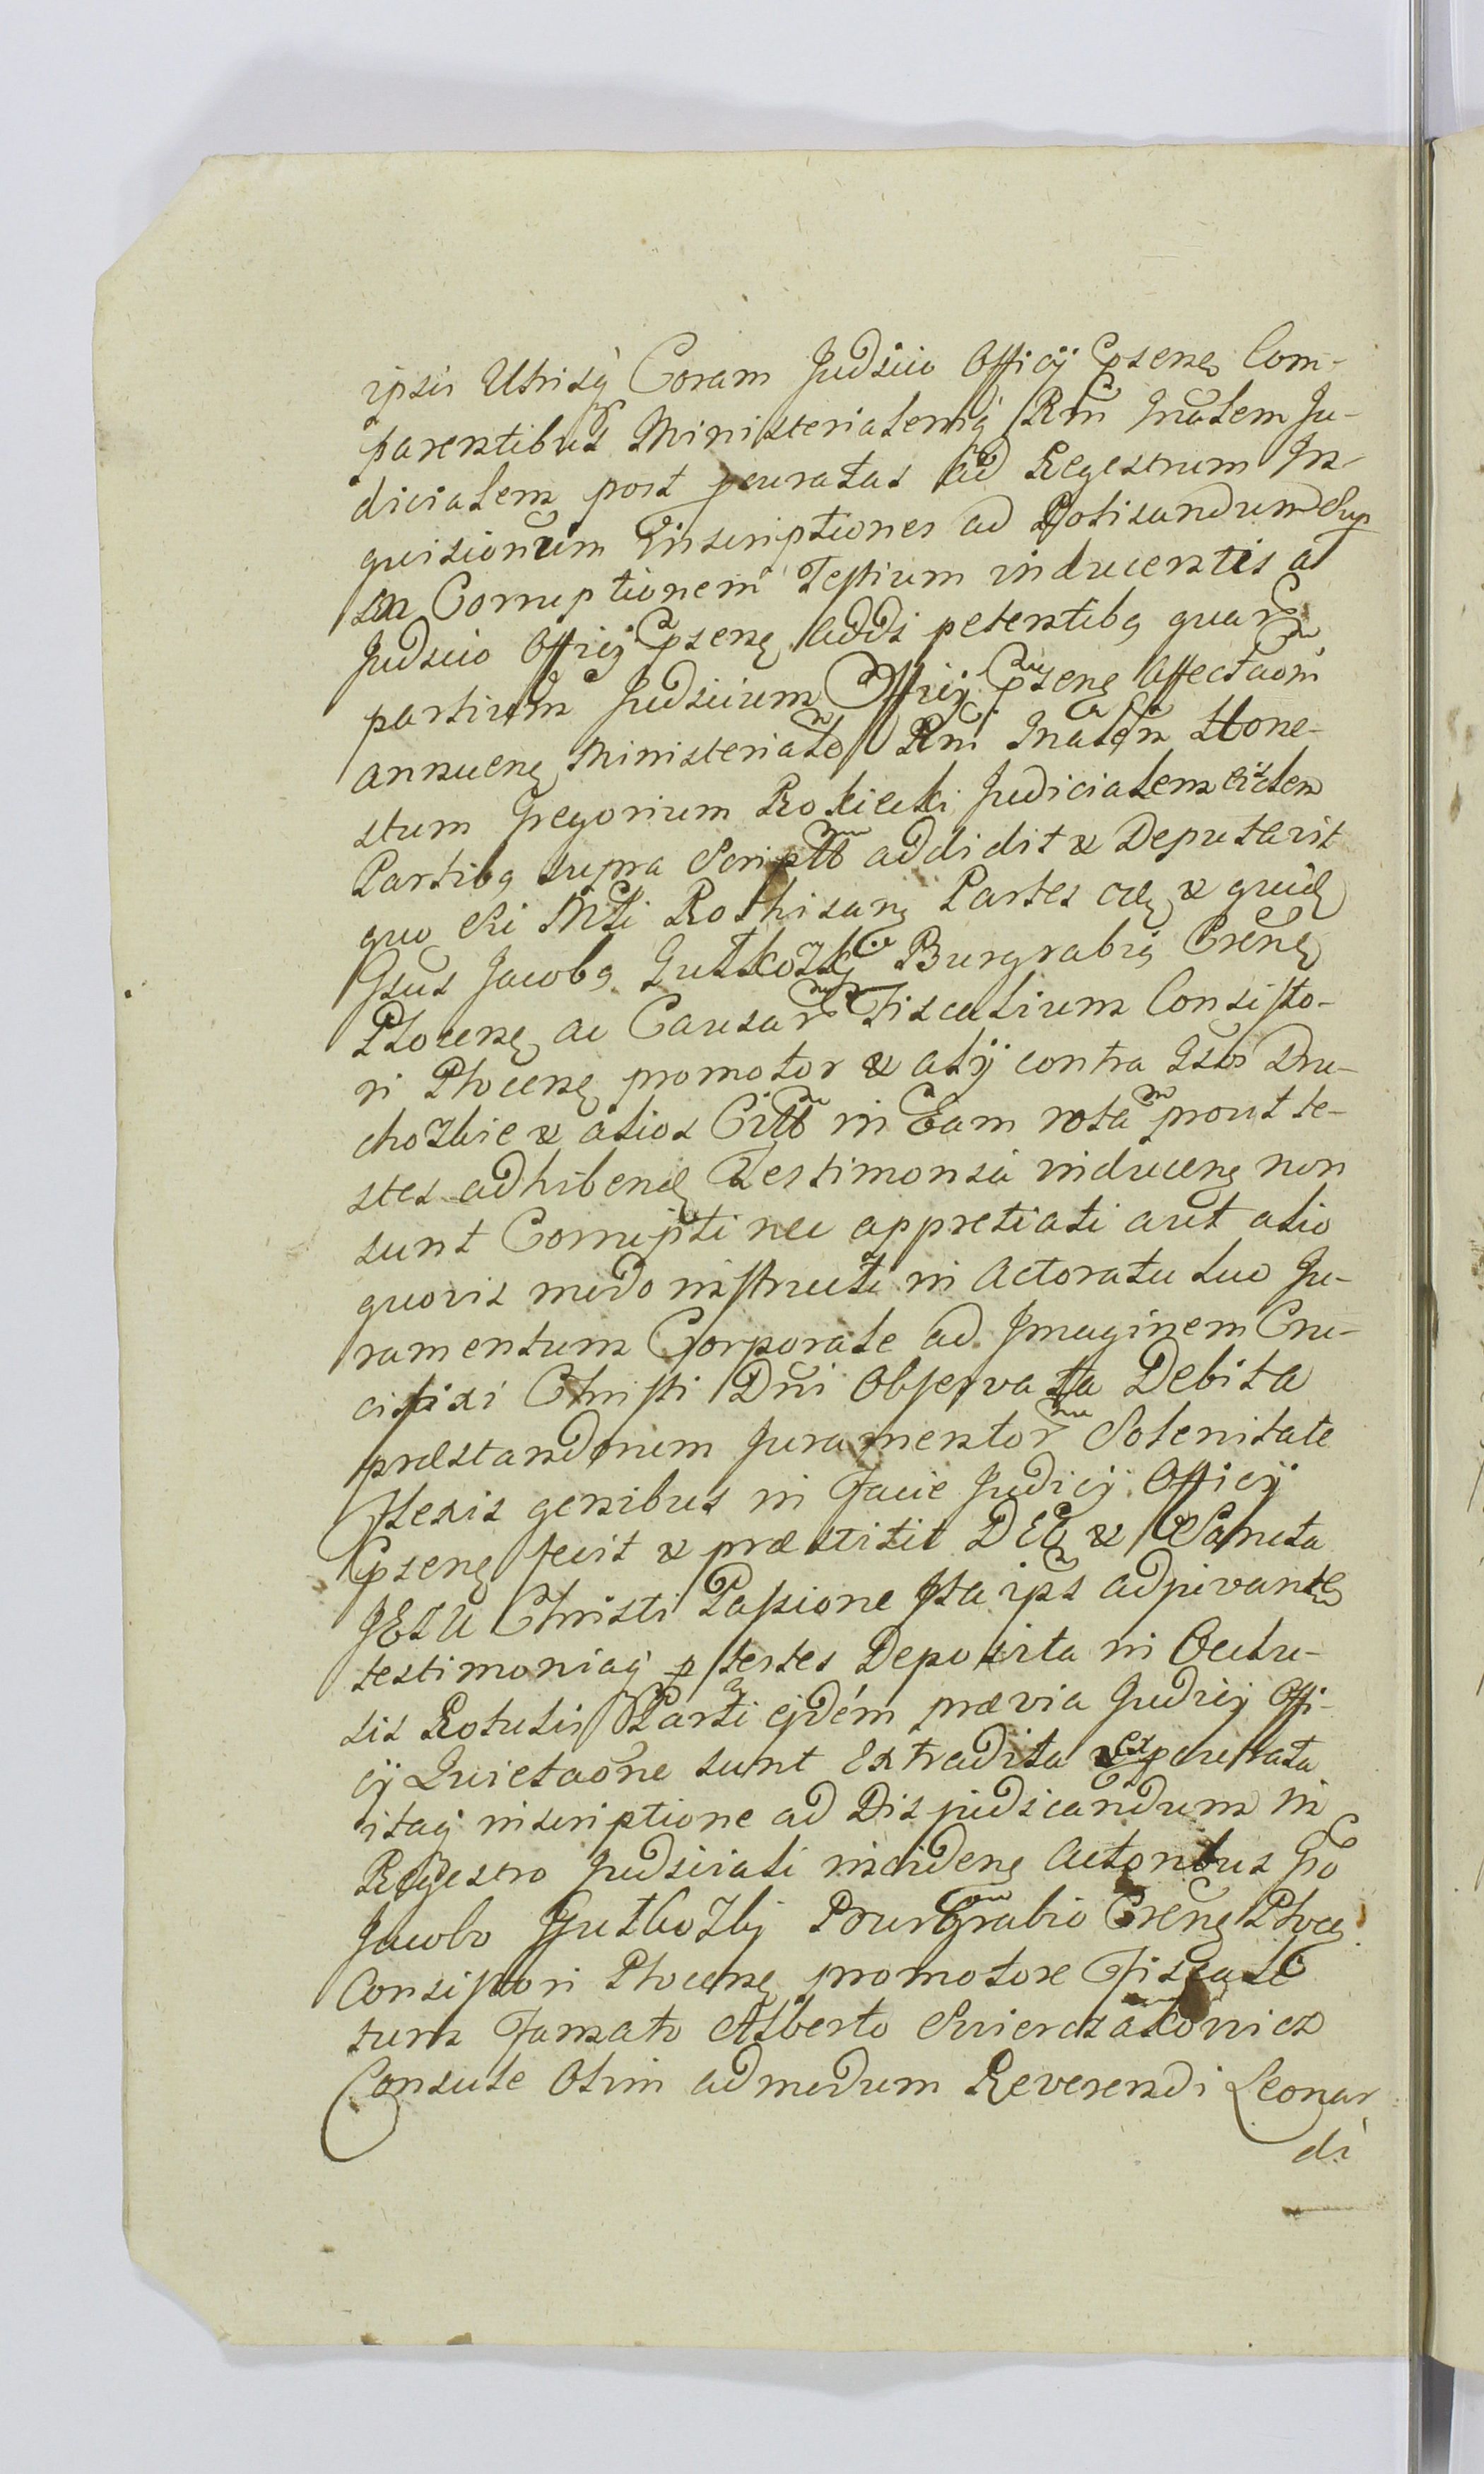 ipsis Utrisq Coram Judicio Officij Epsene Com-
parentibus Ministerialemq Rni Gnalem Ju-
dicialem post procuratas ad Regestrum In-
quisionum Inscriptiones ad Rotisandum Sup
Corruptionem Testium inducentis a
Judicio Officij Epsene Addi petentibq quar
partium Judicium Officij Epsene Affectaoni
annuens Ministeriale Rni Gnalem Hone-
stum Gregorium Rokicki Judicialem eisdem
Partibq supra Scriptis addidit & Deputavit
quo Rothisans Partes & quidē
Gsus Jacobq Gutkozky Burgrabiq Crene
Plocense ac Causar Fiscalium Consisto-
ri Plocense promotor & alij contra Gsos Dru-
chozkie & alios Citt in Eam rota prout te-
stes adhibend Testimonia inducens non
sunt Corrupti nec appretiati aut alio
quovis modo instructi in Actoratu suo Ju-
ramentum Corporale ad Imaginem Cru-
cifixi Christi Dni Observata Debita
præstandorum Juramentor Solenitate
flexis genibus in Facie Judicij Officij
Epsene fecit & præstitit DEO & Sancta
JESU Christi Passione Ita ips adjuvante
testimoniaq p testes Deposita in Oculu-
sis Rotulis Parti ejdem prævia Judicij Offi-
cij Quietaone sunt Extradita
itaq inscriptione ad Disjudicandum in
Regestro Judiciali incidens Actoribus Gso
Jacobo Gutkozky Burgrabio Crene Ploce
Consistori Plocense promotore Fiscale
tum Famato Alberto Swierczakowicz
Consule Olim admodum Reverendi Leonar
di